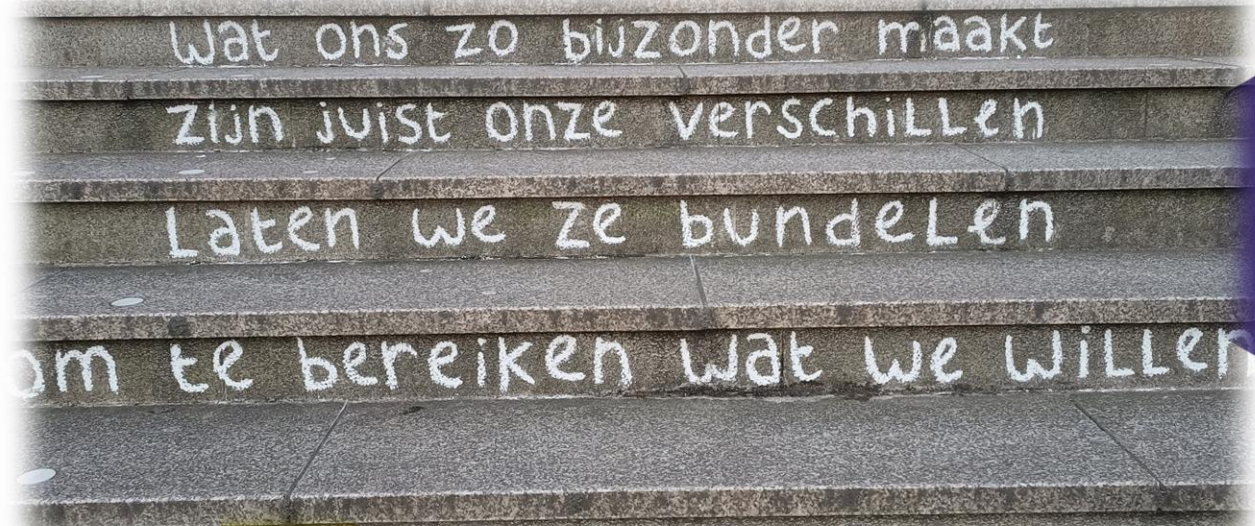 Wat ons zo bijzonder maakt
zijn juist onze verschillen
Laten we ze bundelen
om te bereiken wat we willen